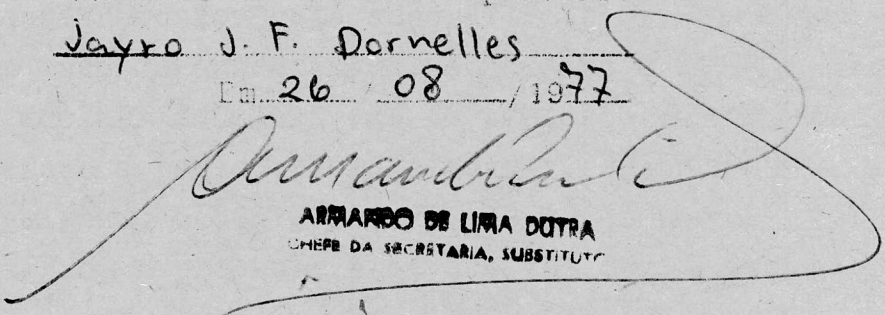 Jayro J. F. Dornelles
Em 26 / 08 / 1977
ARMANDO DE LIMA DUTRA
CHEFE DA SECRETARIA, SUBSTITUTO